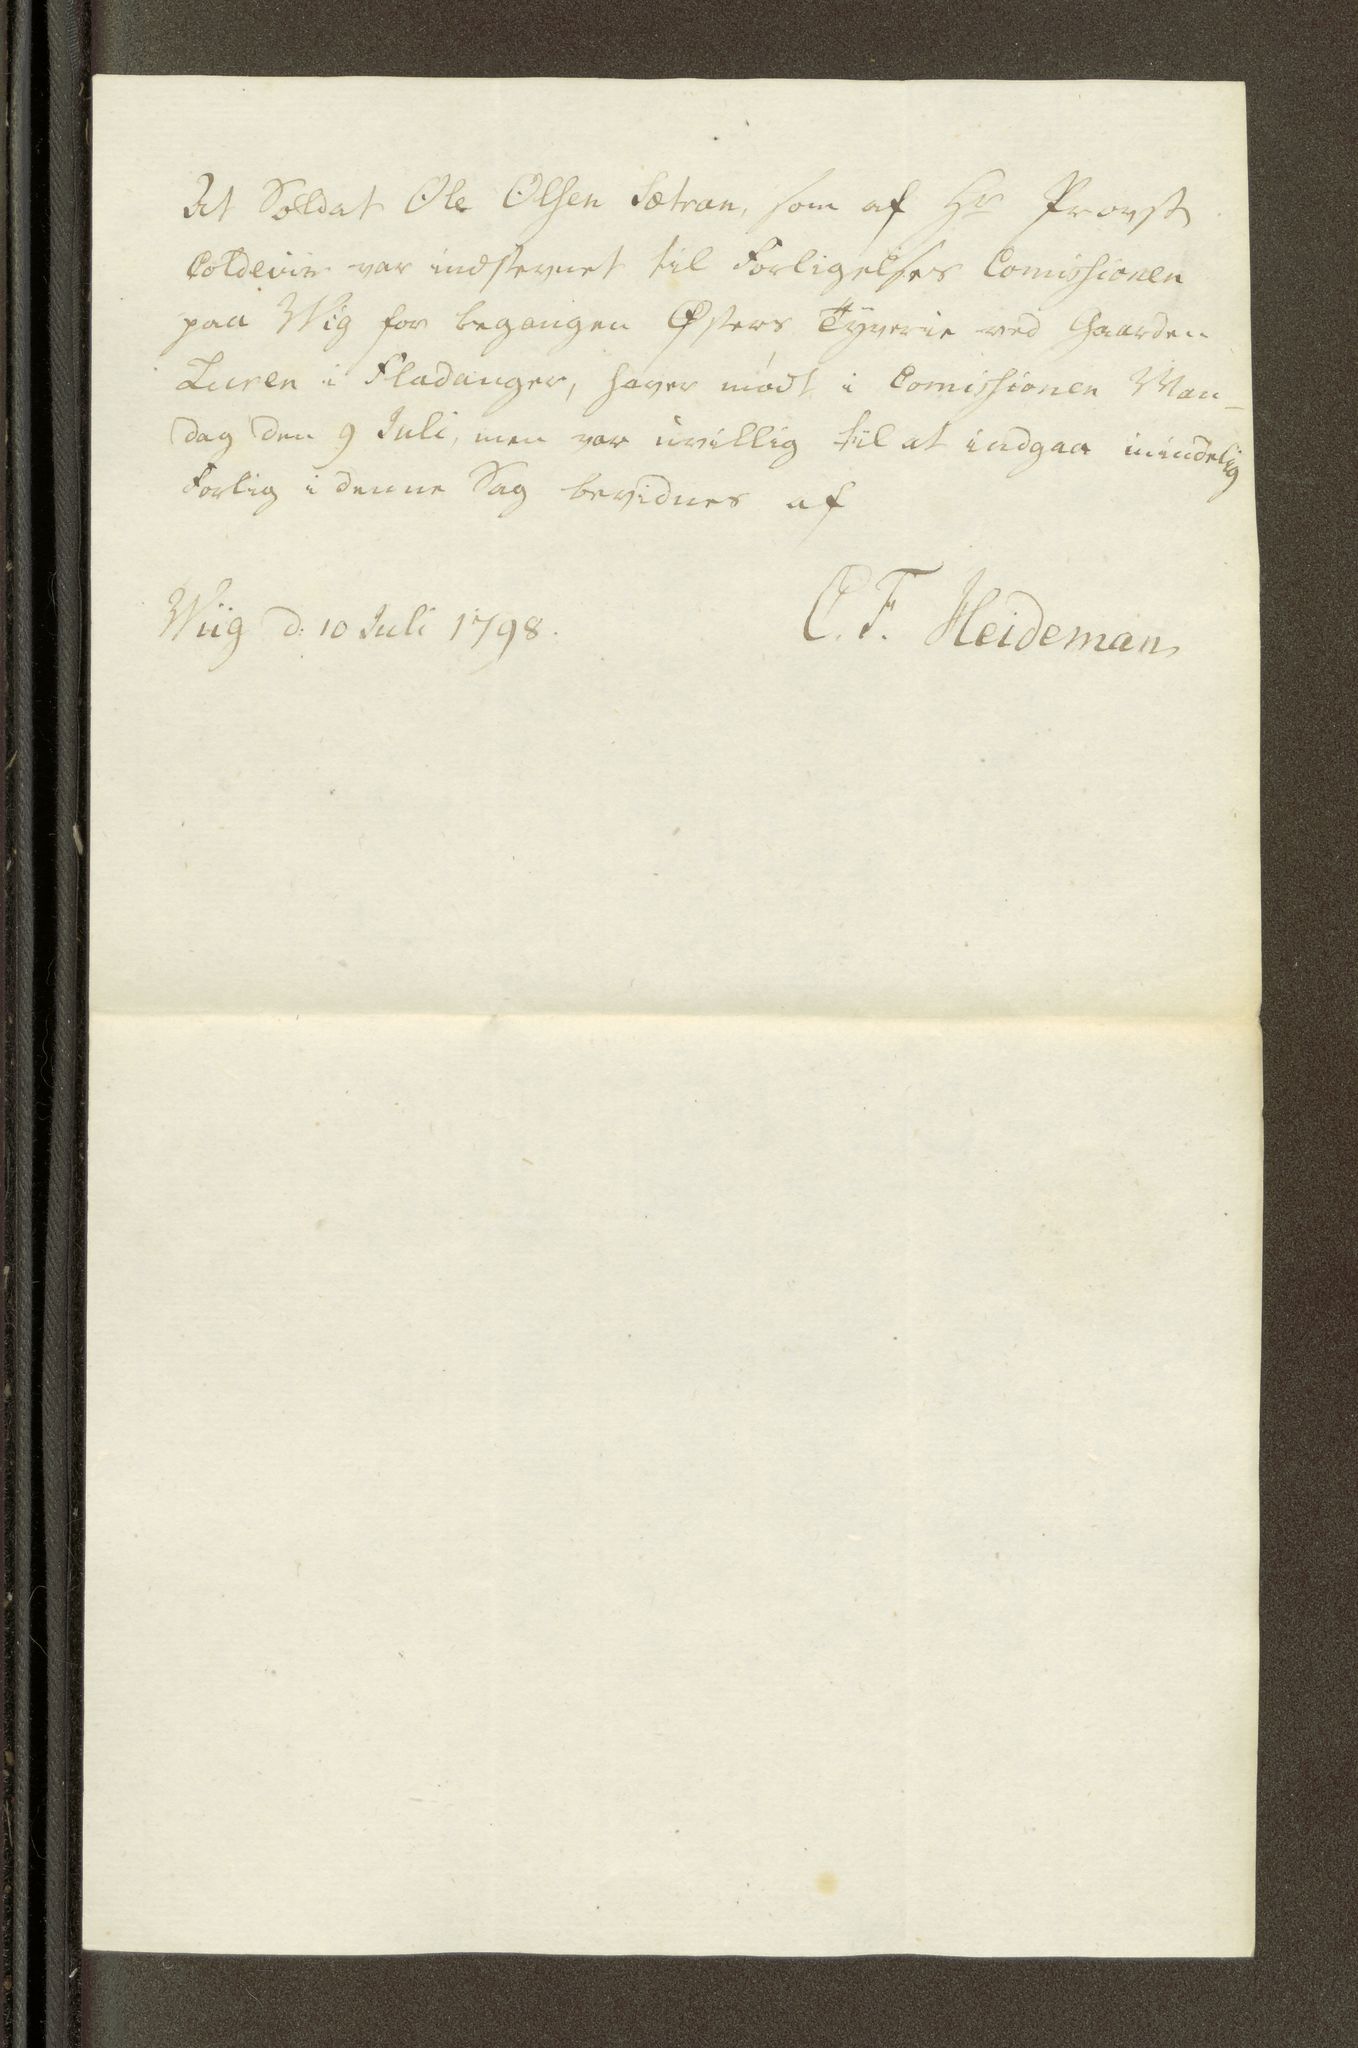 At Soldat Ole Olsen Sætran, som af Hr Provst
Coldevin var indstevnet til Forligelses Comissionen
paa Wiig for begangen Østers Tyverie ved Gaarden
Lueen i Fladanger, haver mødt i Comissionen Man-
dag den 9 Juli, men var uvillig til at indgaa mindelig
Forlig i denne Sag bevidnes af
Wiig d: 10 Juli 1798.
C. F. Heideman